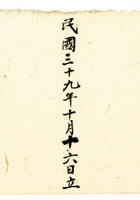 民國三十九年十月十六日立